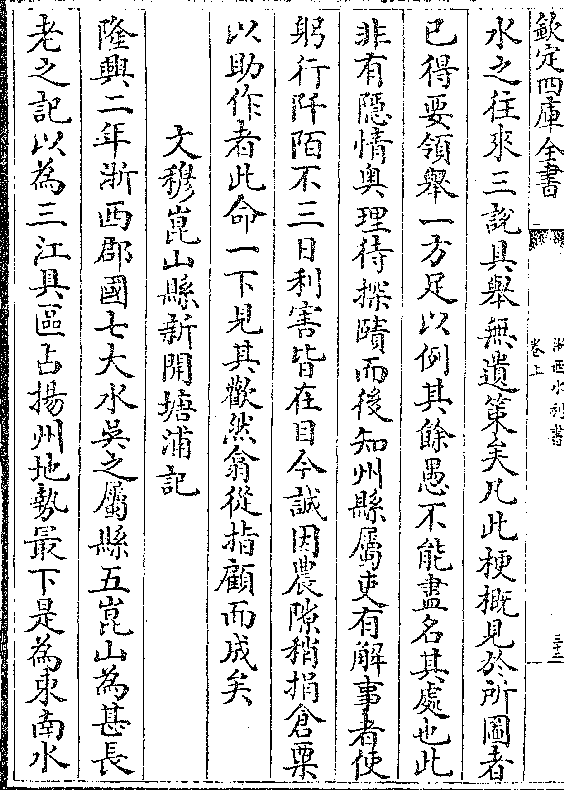 欽定四庫全書
浙西水利書
卷上
三十二
水之往來三說具舉無遺策矣凡此梗概見於所圖者
已得要領舉一方足以例其餘愚不能盡名其處也此
非有隱情奥理待探賾而後知州縣屬吏有解事者使
躬行阡陌不三日利害皆在目今誠因農隙稍捐倉粟
以助作者此命一下見其歡然翕從指顧而成矣
文穆崑山縣新開塘浦記
隆興二年浙西郡國七大水吳之屬縣五崑山為甚長
老之記以為三江具區占揚州地勢最下是為東南水